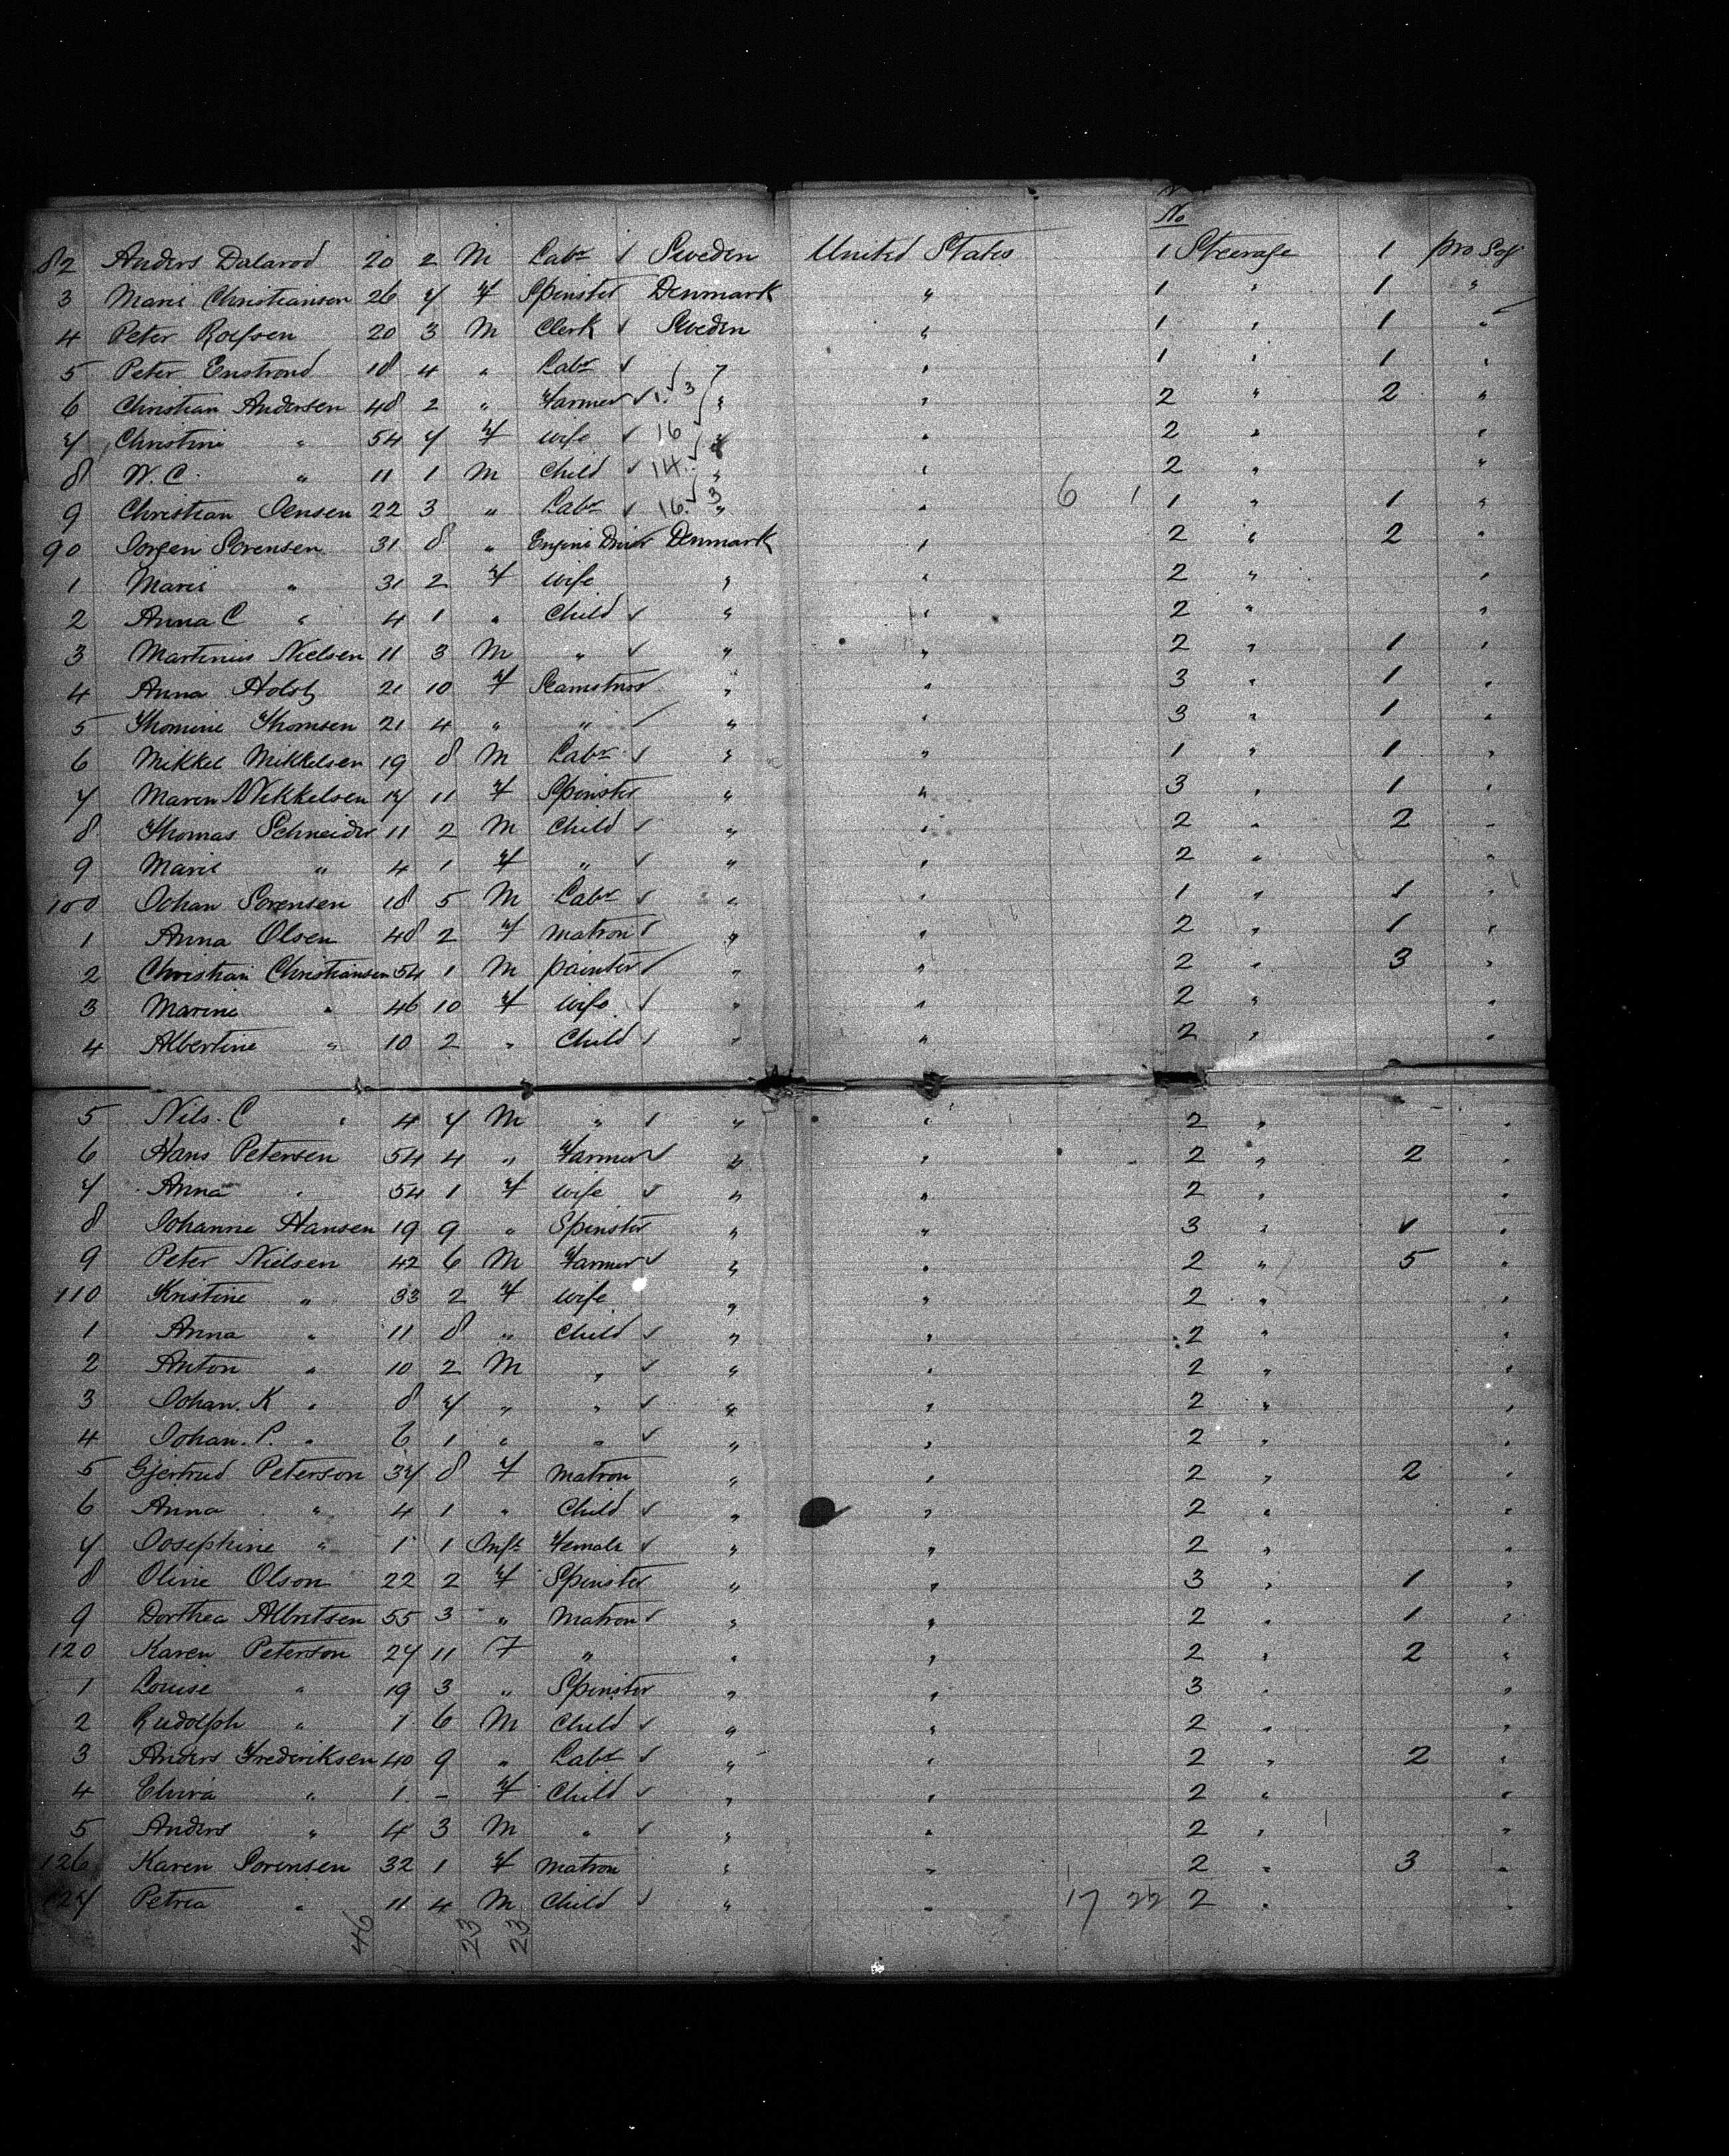 No
82 Anders Dalarod 20 2 M Labr ✓ Sweden United States 1 Steerage 1 pro Soj
3 Marie Christiansen 26 7 F Spinster Denmark " 1 " 1 "
4 Peter Roefsen 20 3 M Clerk ✓ Sweden " 1 " 1 "
5 Peter Enstrond 18 4 " Labr ✓ " 1 " 1 "
6 Christian Andersen 48 2 " Farmer ✓ 3 " " 2 " 2 "
7 Christine " 54 7 F wife ✓ 16 " " 2 " "
8 N. C. " 11 1 M Child ✓ 14 " " 2 " "
9 Christian Jensen 22 3 " Labr ✓ 16 3 " " 6 1 1 " 1 "
90 Jorgen Sorensen 31 8 " Engine Driver Denmark " 2 " 2 "
1 Marie " 31 2 F wife " " 2 " "
2 Anna C " 4 1 " Child ✓ " " 2 " "
3 Martinus Nielsen 11 3 M " ✓ " " 2 " 1 "
4 Anna Holst 21 10 F Seamstress " " 3 " 1 "
5 Thomine Thomsen 21 4 " " ✓ " " 3 " 1 "
6 Mikkel Mikkelsen 19 8 M Labr ✓ " " 1 " 1 "
7 Maren Mikkelsen 17 11 F Spinster " " 3 " 1 "
8 Thomas Schneider 11 2 M Child ✓ " " 2 " 2 "
9 Marie " 4 1 F " ✓ " " 2 " "
100 Johan Sorensen 18 5 M Labr ✓ " " 1 " 1 "
1 Anna Olsen 48 2 F matron ✓ " " 2 " 1 "
2 Christian Christiansen 54 1 M painter ✓ " " 2 " 3 "
3 Marine " 46 10 F wife ✓ " " 2 " "
4 Albertine " 10 2 " Child ✓ " " 2 " "
5 Nils. C " 4 7 M " ✓ " " 2 " "
6 Hans Petersen 54 4 " Farmer ✓ " " 2 " 2 "
7 Anna " 54 1 F wife ✓ " " 2 " "
8 Johanne Hansen 19 9 " Spinster " " 3 " 1 "
9 Peter Nielsen 42 6 M Farmer ✓ " " 2 " 5 "
110 Kristine " 33 2 F wife " " 2 " "
1 Anna " 11 8 " Child ✓ " " 2 " "
2 Anton " 10 2 M " ✓ " " 2 " "
3 Johan. K " 8 7 " " ✓ " " 2 " "
4 Johan. P. " 6 1 " " ✓ " " 2 " "
5 Gjertrud Peterson 37 8 F matron " " 2 " 2 "
6 Anna " 4 1 " Child ✓ " " 2 " "
7 Josephine " 1 1 Inft Female ✓ " " 2 " "
8 Oline Olson 22 2 F Spinster " " 3 " 1 "
9 Dorthea Albretsen 55 3 " Matron ✓ " " 2 " 1 "
120 Karen Peterson 27 11 F " " " 2 " 2 "
1 Louise " 19 3 " Spinster " " 3 " "
2 Rudolph " 1 6 M Child ✓ " " 2 " "
3 Anders Frederiksen 40 9 " Labr ✓ " " 2 " 2 "
4 " 1 - F Child ✓ " " 2 " "
5 Anders " 4 3 M " ✓ " " 2 " "
126 Karen Sorensen 32 1 F matron " " 2 " 3 "
127 Petrea " 11 4 M Child ✓ " " 17 22 2 " "
46 23 23